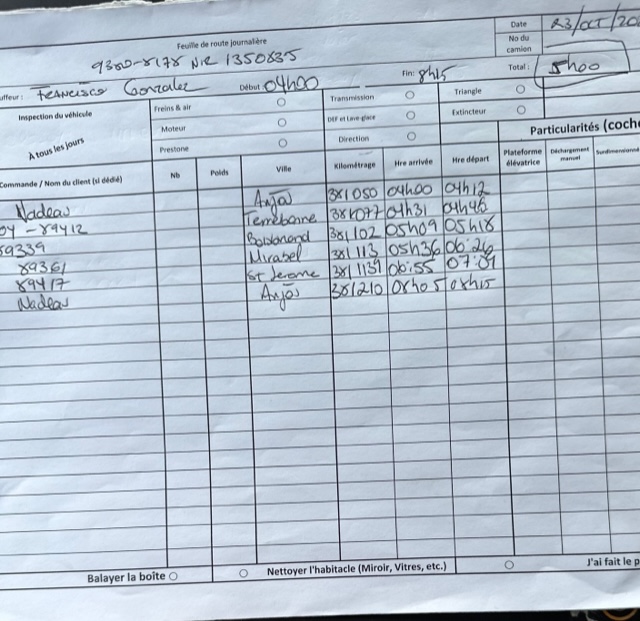 Date 23/OCT/202
Feuille de route journalière
No du camion
9380-8178 NIR 1350635
Total : 5h00
uffeur : Francisco Gonzalez Début : 04h00 Fin: 8h15
Inspection du véhicule Freins & air Transmission Triangle
Moteur DEF et Lave-glace Extincteur
A tous les jours Prestone Direction Particularités (coche
Commande / Nom du client (si dédié) Nb Poids Ville Kilométrage Hre arrivée Hre départ Plateforme élévatrice Déchargement manuel Surdimensionné
Nadeau Anjou 381050 04h00 04h12
04-89412 Terrebonne 381077 04h31 04h46
89339 Boisbriand 381102 05h09 05h18
89361 Mirabel 381113 05h36 06:26
89417 St Jerome 381139 06:55 07:01
Nadeau Anjou 381210 08h05 08h15
Balayer la boîte Nettoyer l'habitacle (Miroir, Vitres, etc.) J'ai fait le p